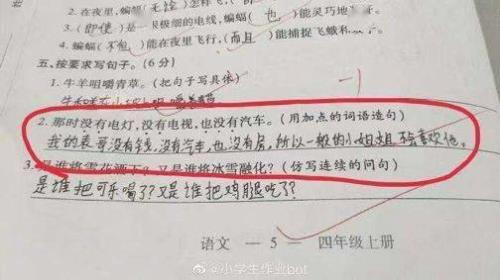 2. 在夜里,蝙蝠(无论)怎样飞,(
3. (即使)是一根极细的电线,蝙蝠(也)能灵巧地
4. 蝙蝠(不但)能在夜里飞行,(而且)能捕捉飞蛾和
五、按要求写句子。(6分)
1. 牛羊咀嚼青草。(把句子写具体)
2. 那时没有电灯,没有电视,也没有汽车。(用加点的词语造句)
我的表哥没有钱,没有汽车,也没有房,所以一般的小姐姐不喜欢他。
3. 是谁将雪花洒下?又是谁将冰雪融化?(仿写连续的问句)
是谁把可乐喝了?又是谁把鸡腿吃了?
语文 — 5 — 四年级上册
@小学生作业bot